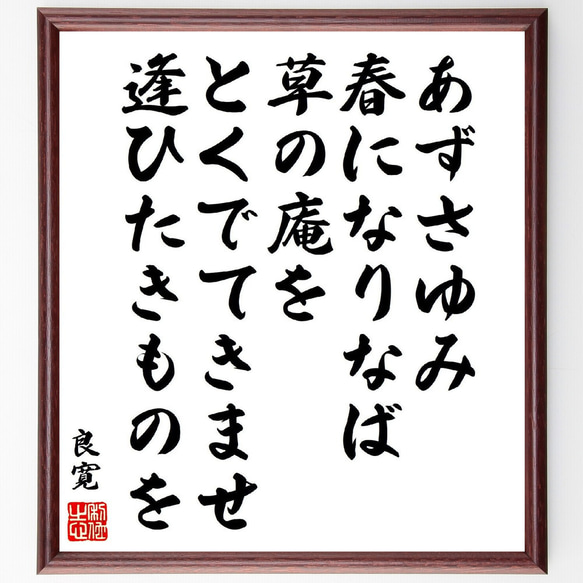 あずさゆみ
春になりなば
草の庵を
とくでてきませ
逢ひたきものを
良寛